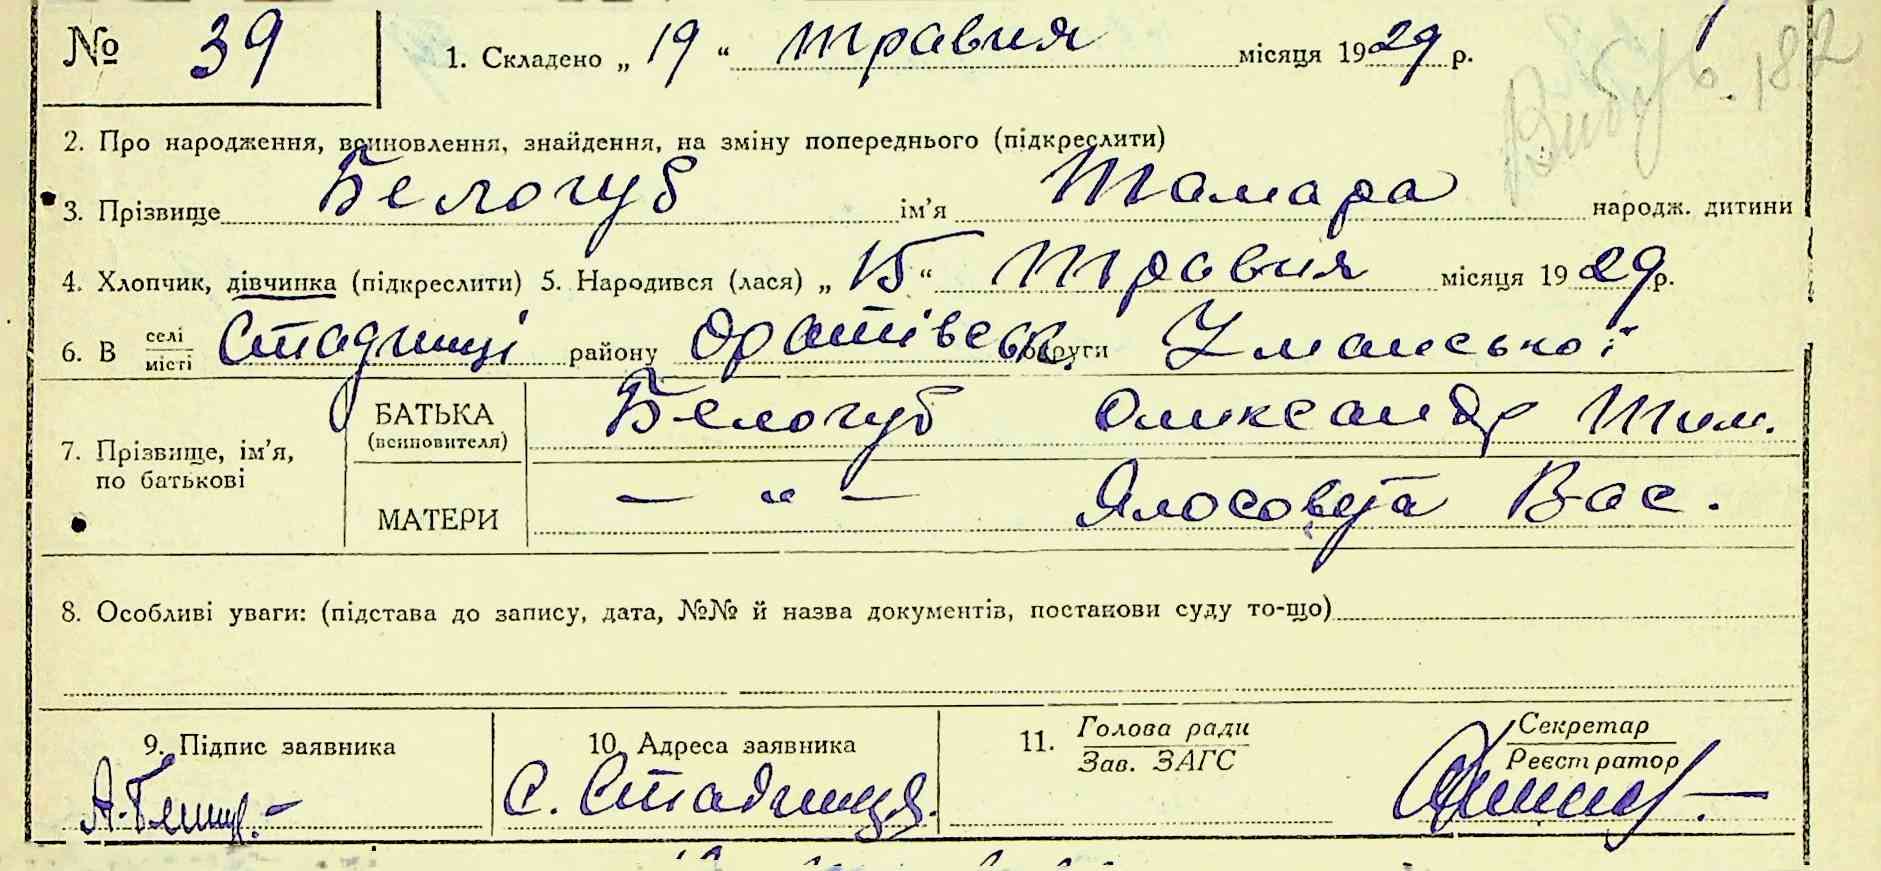 № 39 1. Складено „ 19 “ травня місяця 1929 р.
2. Про народження, всиновлення, знайдення, на зміну попереднього (підкреслити)
3. Прізвище Белогуб ім’я Тамара народж. дитини
4. Хлопчик, дівчинка (підкреслити) 5. Народився (лася) „ 15 “ травня місяця 1929 р.
6. В селі Стадниці району Оратівськ. округи Уманської
місті
БАТЬКА Белогуб Олександр Тим.
(всиновителя)
7. Прізвище, ім’я,
по батькові
МАТЕРИ — „ — Ялосовета Вас.
8. Особливі уваги: (підстава до запису, дата, №№ й назва документів, постанови суду то-що)
9. Підпис заявника 10. Адреса заявника 11. Голова ради Секретар
Зав. ЗАГС Реєстратор
с. Стадниця.